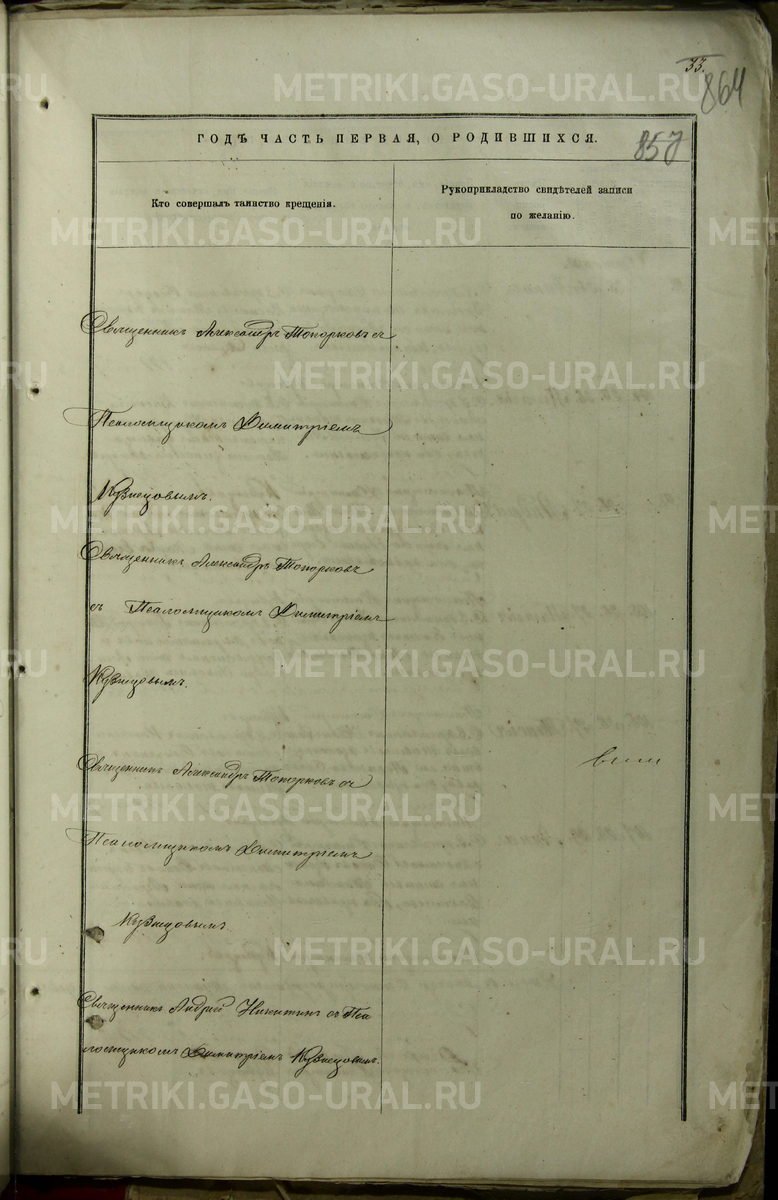 33.
864
ГОДЪ ЧАСТЬ ПЕРВАЯ, О РОДИВШИХСЯ.
857
Кто совершалъ таинство крещенія.
Рукоприкладство свидѣтелей записи
по желанію.
Священникъ Александръ Топорковъ съ
Псаломщикомъ Димитріемъ
Кузнецовымъ.
Священникъ Александръ Топорковъ
съ Псаломщикомъ Димитріемъ
Кузнецовымъ.
Священникъ Александръ Топорковъ съ
Псаломщикомъ Димитріемъ
Кузнецовымъ.
Священникъ Андрей Никитинъ съ Пса
ломщикомъ Димитріемъ Кузнецовымъ.
METRIKI.GASO-URAL.RU